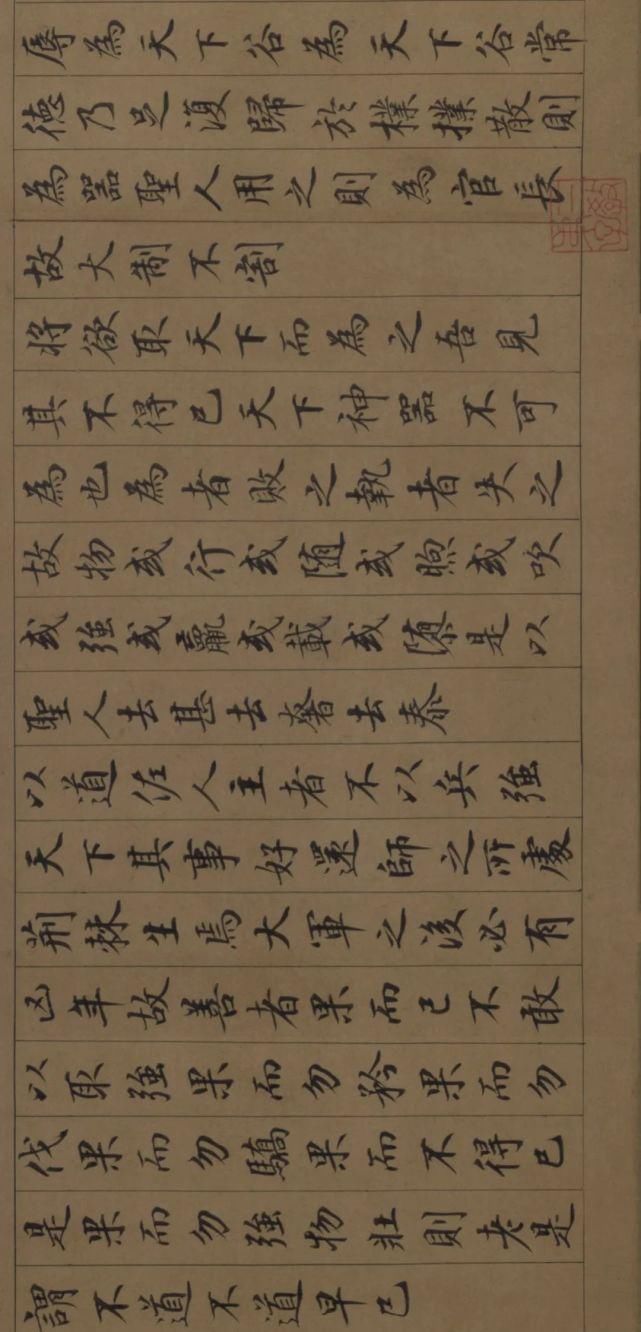 辱為天下谷為天下谷常
德乃足復歸於樸樸散則
為器聖人用之則為官長
故大制不割
將欲取天下而為之吾見
其不得已天下神器不可
為也為者敗之執者失之
故物或行或随或煦或吹
或強或羸或載或隳是以
聖人去甚去奢去泰
以道佐人主者不以兵強
天下其事好還師之所處
荆棘生焉大軍之後必有
凶年故善者果而已不敢
以取強果而勿矜果而勿
伐果而勿驕果而不得已
是果而勿強物壯則老是
謂不道不道早已